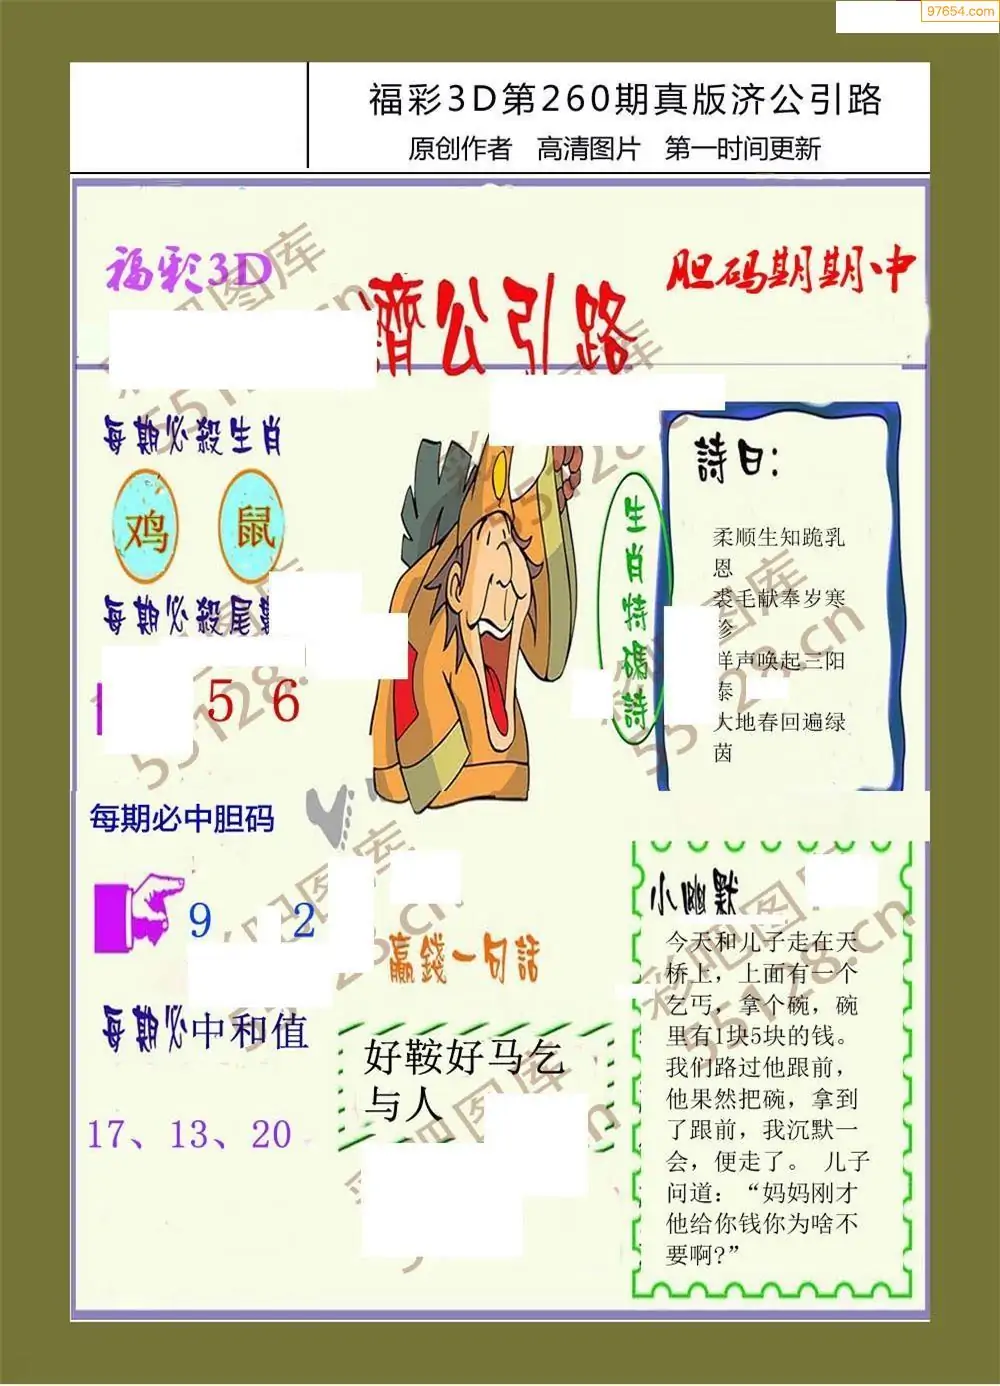 97654.com
福彩3D第260期真版济公引路
原创作者 高清图片 第一时间更新
福彩3D
濟公引路
胆码期期中
每期必殺生肖
鸡 鼠
每期必殺尾
5 6
每期必中胆码
9 2
每期必中和值
17、13、20
生肖特碼詩
詩曰:
柔顺生知跪乳
恩
裘毛献奉岁寒
声唤起三阳
泰
大地春回遍绿
茵
赢錢一句話
好鞍好马乞
与人
小幽默
今天和儿子走在天
桥上，上面有一个
乞丐，拿个碗，碗
里有1块5块的钱。
我们路过他跟前，
他果然把碗，拿到
了跟前，我沉默一
会，便走了。 儿子
问道：“妈妈刚才
他给你钱你为啥不
要啊?”
彩吧图库
55128.cn